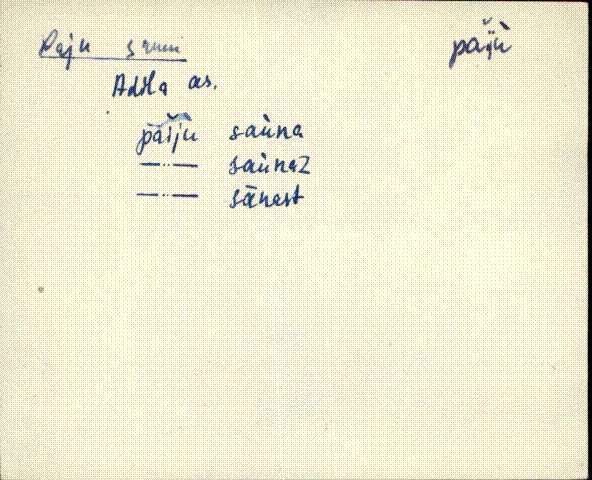 Paju saun
păi̯ù
Adila as.
păiju saùna
—··— saùnaz
—··— sānast